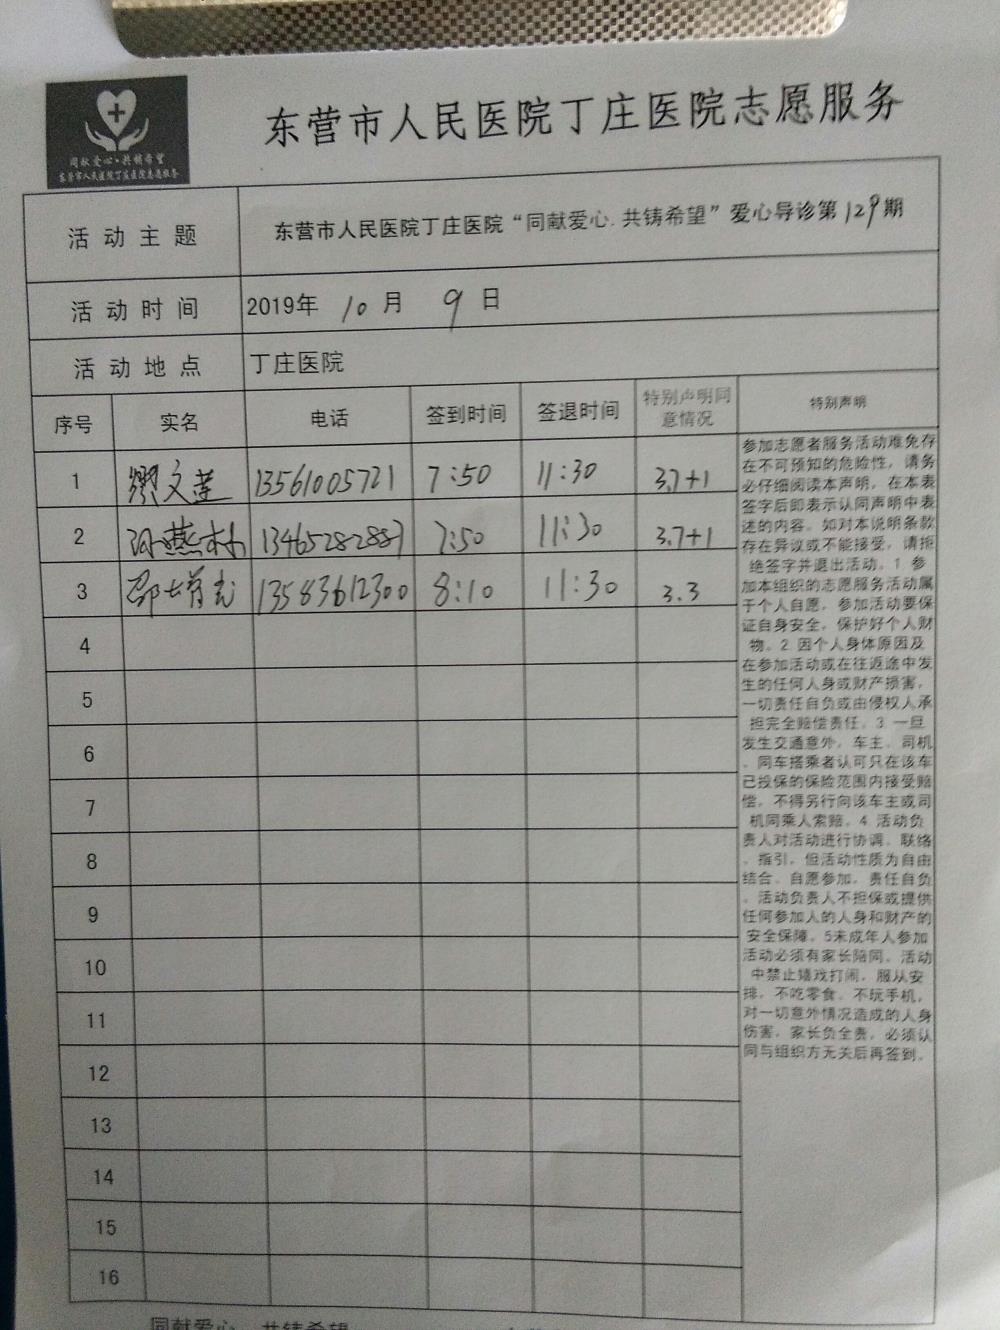 同献爱心·共铸希望
东营市人民医院丁庄医院志愿服务
东营市人民医院丁庄医院志愿服务
活动主题 东营市人民医院丁庄医院“同献爱心.共铸希望”爱心导诊第129期
活动时间 2019年 10月 9日
活动地点 丁庄医院
序号 实名 电话 签到时间 签退时间 特别声明同意情况 特别声明
1 缪文莲 13561005721 7:50 11:30 3.7+1
2 燕 13465282887 7:50 11:30 3.7+1
3 邵 13583612300 8:10 11:30 3.3
4
5
6
7
8
9
10
11
12
13
14
15
16
参加志愿者服务活动难免存
在不可预知的危险性，请务
必仔细阅读本声明，在本表
签字后即表示认同声明中表
述的内容。如对本说明条款
存在异议或不能接受，请拒
绝签字并退出活动。1.参
加本组织的志愿服务活动属
于个人自愿，参加活动要保
证自身安全，保护好个人财
物。2.因个人身体原因及
在参加活动或在往返途中发
生的任何人身或财产损害，
一切责任自负或由侵权人承
担完全赔偿责任。3.一旦
发生交通意外，车主、司机
、同车搭乘者认可只在该车
已投保的保险范围内接受赔
偿，不得另行向该车主或司
机同乘人索赔。4.活动负
责人对活动进行协调、联络
、指引，但活动性质为自由
结合、自愿参加、责任自负
。活动负责人不担保或提供
任何参加人的人身和财产的
安全保障。5未成年人参加
活动必须有家长陪同。活动
中禁止嬉戏打闹，服从安
排，不吃零食、不玩手机，
对一切意外情况造成的人身
伤害，家长负全责，必须认
同与组织方无关后再签到。
同献爱心 共铸希望